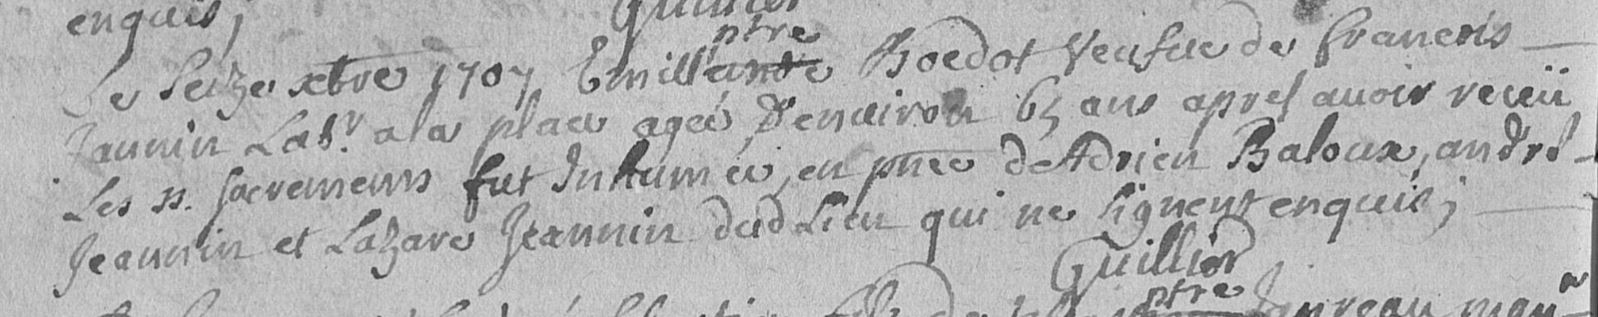 enquis;
Guillier
ptre
Le Seize xbre 1707 Emillande Boedot Veufue de francois
Jannin Labr. a la place agéé D'enuiron 65 ans apres auoir receü
Les ss. sacremens fut Inhuméé, en pnce de Adrien Baloux, andré
Jeannin et Lazare Jeannin dud Lieu qui ne signent enquis;
Guillier
ptre